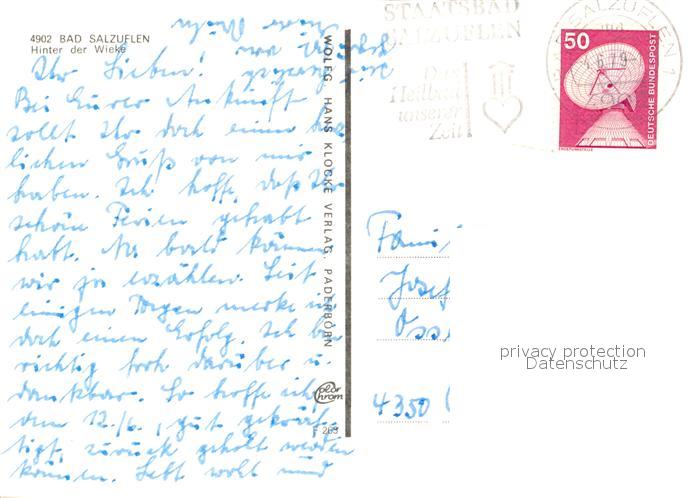 4902 BAD SALZUFLEN
Hinter der Wieke
Ihr Lieben!
Bei Eurer Ankunft
sollt Ihr doch einen herz
lichen Gruß von mir
haben. Ich hoffe, daß Ihr
schöne Ferien gehabt
habt. Na bald können
wir ja erzählen. Seit
einigen Tagen merke ich
doch einen Erfolg. Ich bin
richtig froh darüber u.
dankbar. So hoffe ich
dem 12./6., gut gekräf-
tigt, zurück geholt werden
können. Lebt wohl und
WOLFG. HANS KLOCKE VERLAG, PADERBORN
Color
Chrom
F 269
STAATSBAD
SALZUFLEN
Das
Heilbad
unserer
Zeit
BAD SALZUFLEN 1
50
DEUTSCHE BUNDESPOST
ERDEFUNKSTELLE
Fami
Josef
Oss
4350
privacy protection
Datenschutz